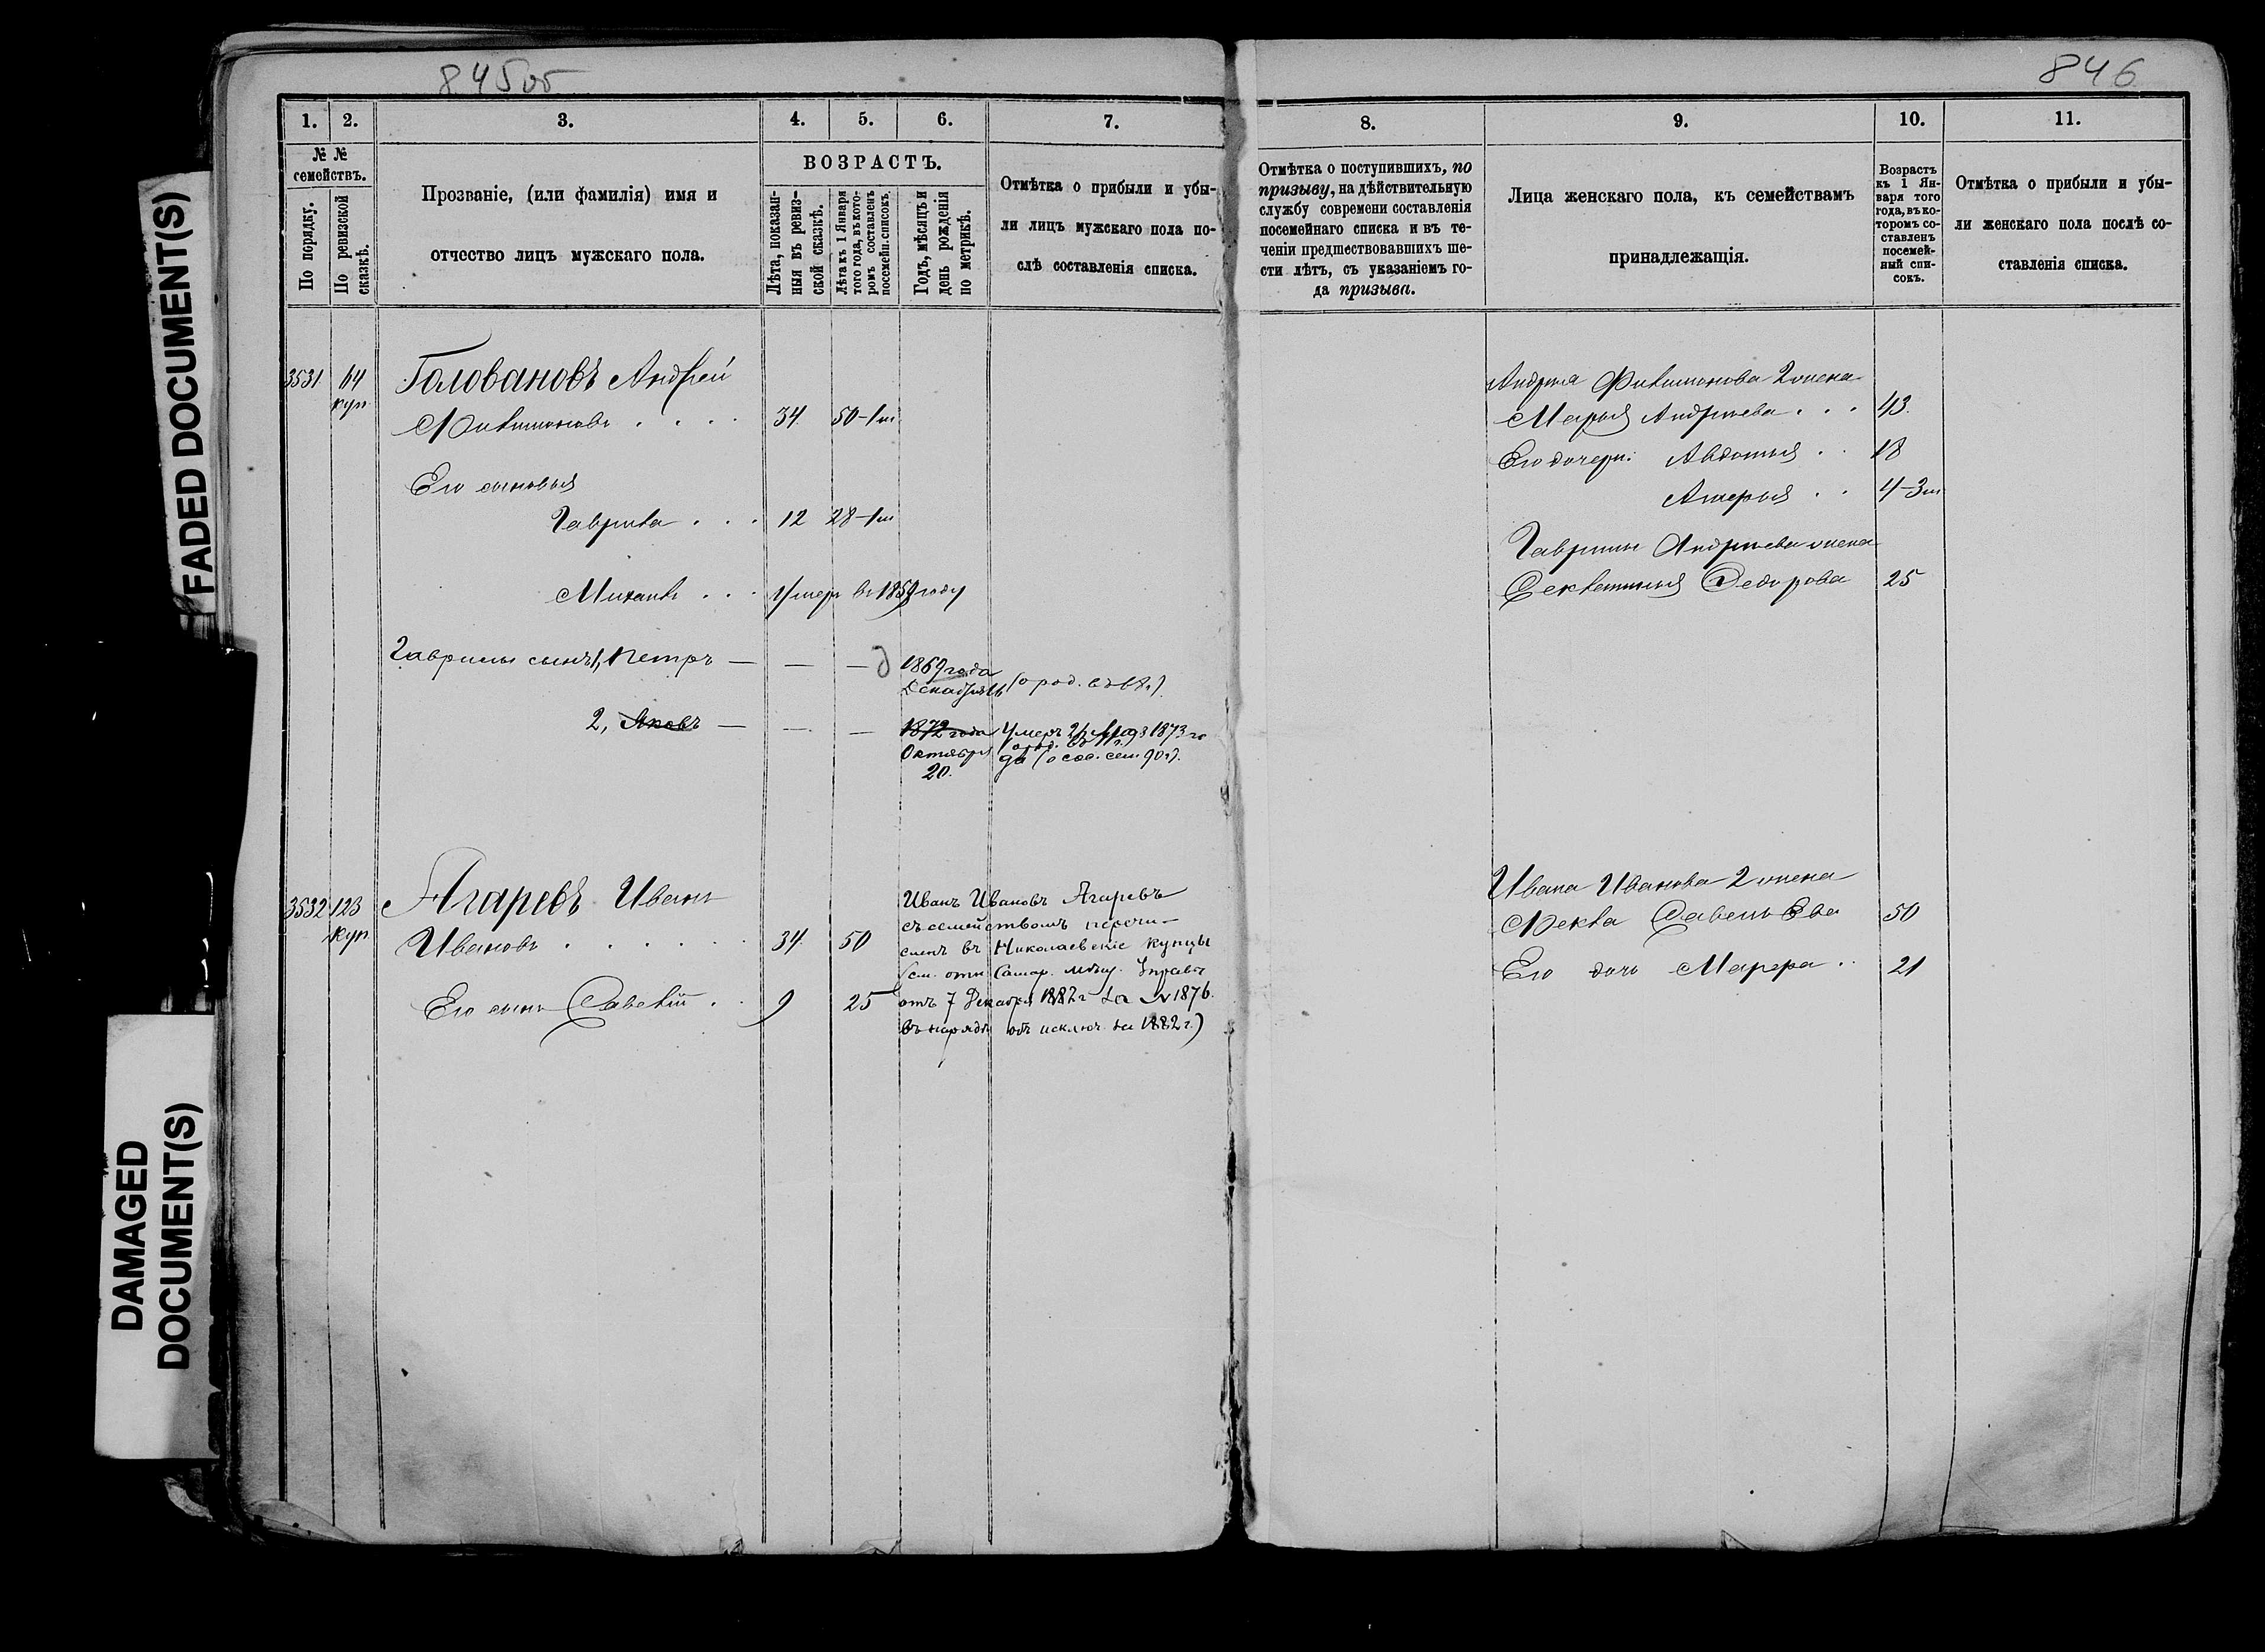 845об
846
FADED DOCUMENT(S)
DAMAGED
DOCUMENT(S)
1. 2. 3. 4. 5. 6. 7.
№ №
семействъ.
По порядку.
По ревизской
сказкѣ.
Прозваніе, (или фамилія) имя и
отчество лицъ мужскаго пола.
ВОЗРАСТЪ.
Лѣта, показан-
ныя въ ревиз-
ской сказкѣ.
Лѣта къ 1 Января
того года, въ кото-
ромъ составленъ
посемейн. списокъ.
Годъ, мѣсяцъ и
день рожденія
по метрикѣ.
Отмѣтка о прибыли и убы-
ли лицъ мужскаго пола по-
слѣ составленія списка.
3531 64 Головановъ Андрей
куп.
Филимоновъ . . . . 34 50-1м
Его сыновья
Гаврила . . . 12 28-1м
Михаилъ . . . Умеръ въ 1859 году
Гаврилы сынъ 1, Петръ — — — 1869 года
Декабря 16 (о род. св.
2, Яковъ — — — 1872 года Умеръ 1873 го
Октября да
20.
3532 123 Агаревъ Иванъ
куп.
Ивановъ . . . . . 34. 50
Его сынъ Савелій . . 9 25
Иванъ Ивановъ Агаревъ
съ семействомъ перечи-
сленъ въ Николаевскіе купцы
(см. отн. Самар. мѣщ. Управы
отъ 7 Декабря 1882 г за № 1876.
въ нарядѣ объ исключ. за 1882 г.)
8. 9. 10. 11.
Отмѣтка о поступившихъ, по
призыву, на дѣйствительную
службу современи составленія
посемейнаго списка и въ те-
ченіи предшествовавшихъ ше-
сти лѣтъ, съ указаніемъ го-
да призыва.
Лица женскаго пола, къ семействамъ
принадлежащія.
Возрастъ
къ 1 Ян-
варя того
года, въ ко-
торомъ со-
ставленъ
посемей-
ный спи-
сокъ.
Отмѣтка о прибыли и убы-
ли женскаго пола послѣ со-
ставленія списка.
Андрея Филимонова 2 жена
Марья Андреева . . . 43.
Его дочери: Авдотья . . 18
. . 4-3м
Гаврилы Андреева жена
Федорова 25
Ивана Иванова 2 жена
Фекла Савельева 50
Его дочь Марфа . . 21